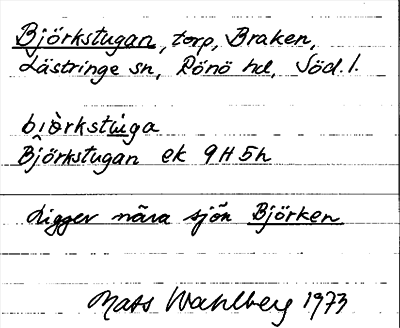 Björkstugan, torp, Braken,
Lästringe sn, Rönö hd, Söd. l.
biòrkstúga
Björkstugan ek 9H5h
Ligger nära sjön Björken
Mats Wahlberg 1973